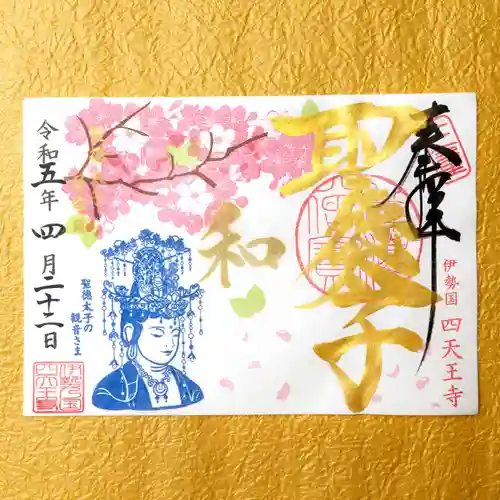 奉拝
伊勢国 四天王寺
聖徳太子
和
聖徳太子の
観音さま
令和五年 四月二十二日